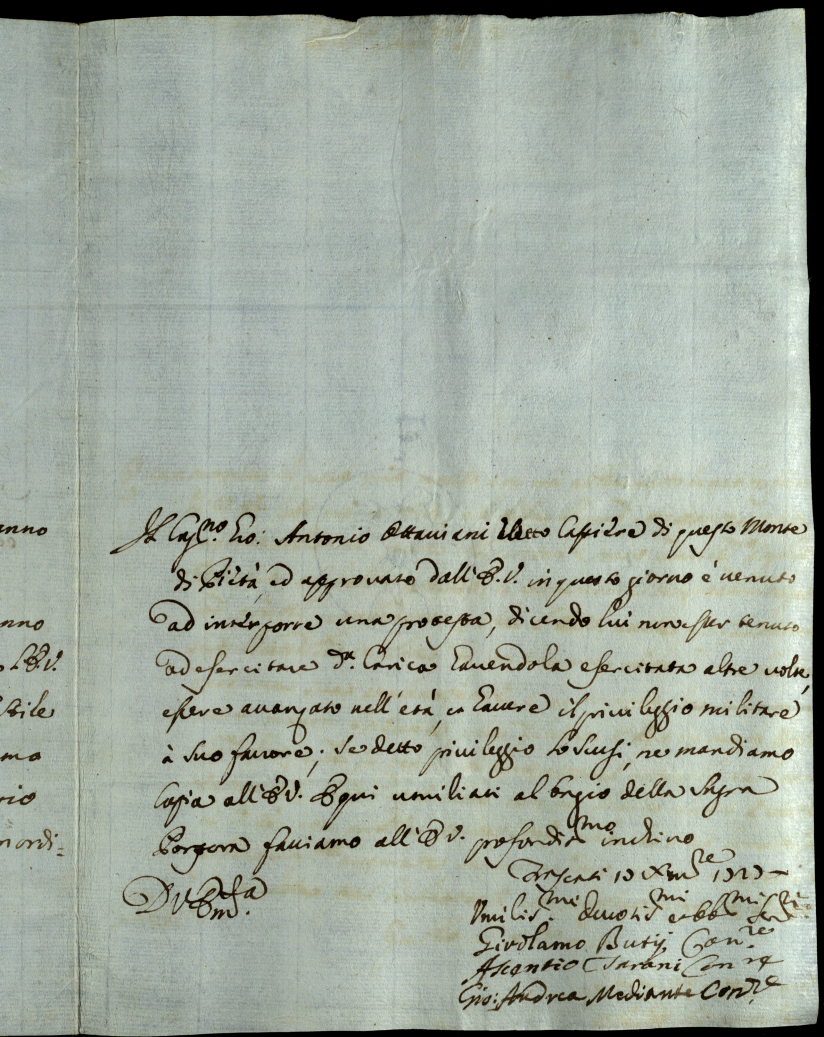 anno
nno
L'E.V.
stile
mo
rio
nordi=
Il Cap.no Gio: Antonio Ottaviani eletto Cassiere di questo Monte
di Pietà, ed approvato dall'E.V. in questo giorno è venuto
ad interporre una protesta, dicendo lui non esser tenuto
ad esercitare d.a Carica havendola esercitata altre volte,
essere avanzato nell'età, et havere il privileggio militare
à suo favore; se detto privileggio lo scusi, ne mandiamo
Copia all'E.V. E qui umiliati al bagio della Sagra
Porpora facciamo all'E.V. profondis.mo inchino
Frascati 10 Xm.re
D.V. Em.za
Umilis.mi Devotis.mi et obb.mi Ser.ri
Girolamo Butij Con.re
Ascentio Con.re
Gio: Andrea Mediante Con.re